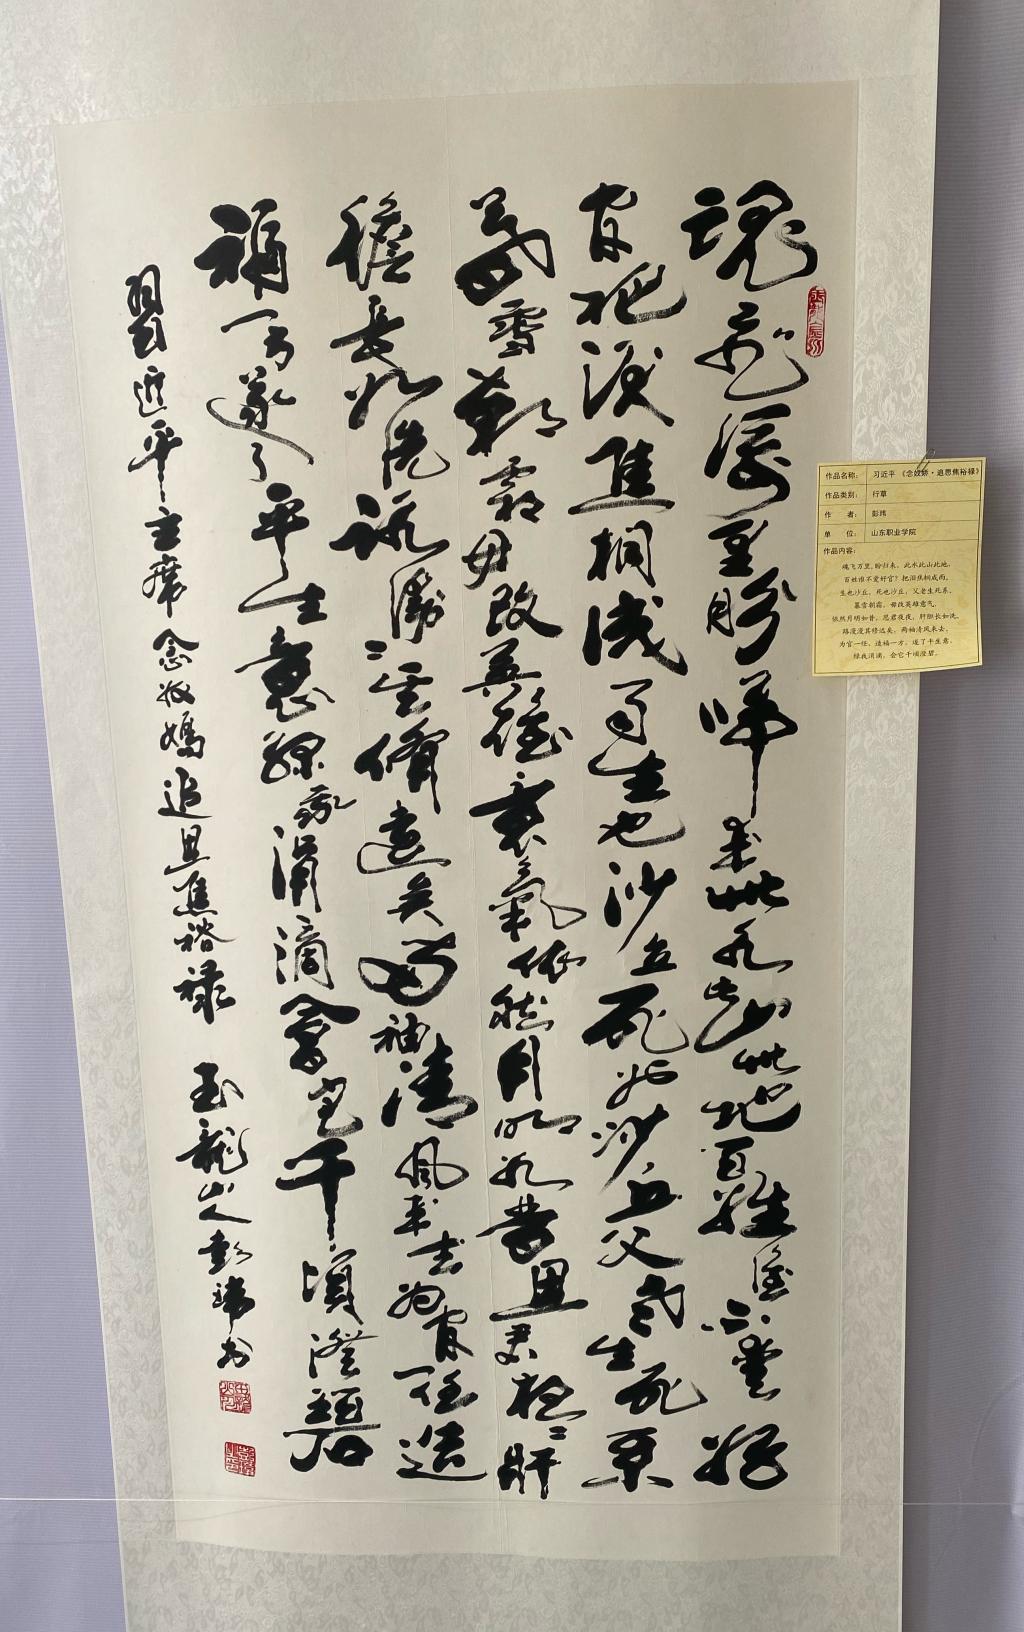 魂飛萬里盼歸来此水此山此地百姓誰不愛好
官把淚焦桐成雨生也沙丘死也沙丘父老生死系
暴雪朝霜毋改英雄意氣依然月明如昔思君夜夜肝
膽長如洗路漫漫其修遠矣兩袖清風来去為官一任造
福一方遂了平生意綠我涓滴會它千頃澄碧
習近平主席念奴嬌追思焦裕禄 玉龍山人彭瑋書
作品名称： 习近平《念奴娇·追思焦裕禄》
作品类别： 行草
作 者： 彭玮
单 位： 山东职业学院
作品内容：
魂飞万里,盼归来，此水此山此地。
百姓谁不爱好官？把泪焦桐成雨。
生也沙丘，死也沙丘，父老生死系。
暴雪朝霜，毋改英雄意气。
依然月明如昔，思君夜夜，肝胆长如洗。
路漫漫其修远矣，两袖清风来去。
为官一任，造福一方，遂了平生意。
绿我涓滴，会它千顷澄碧。